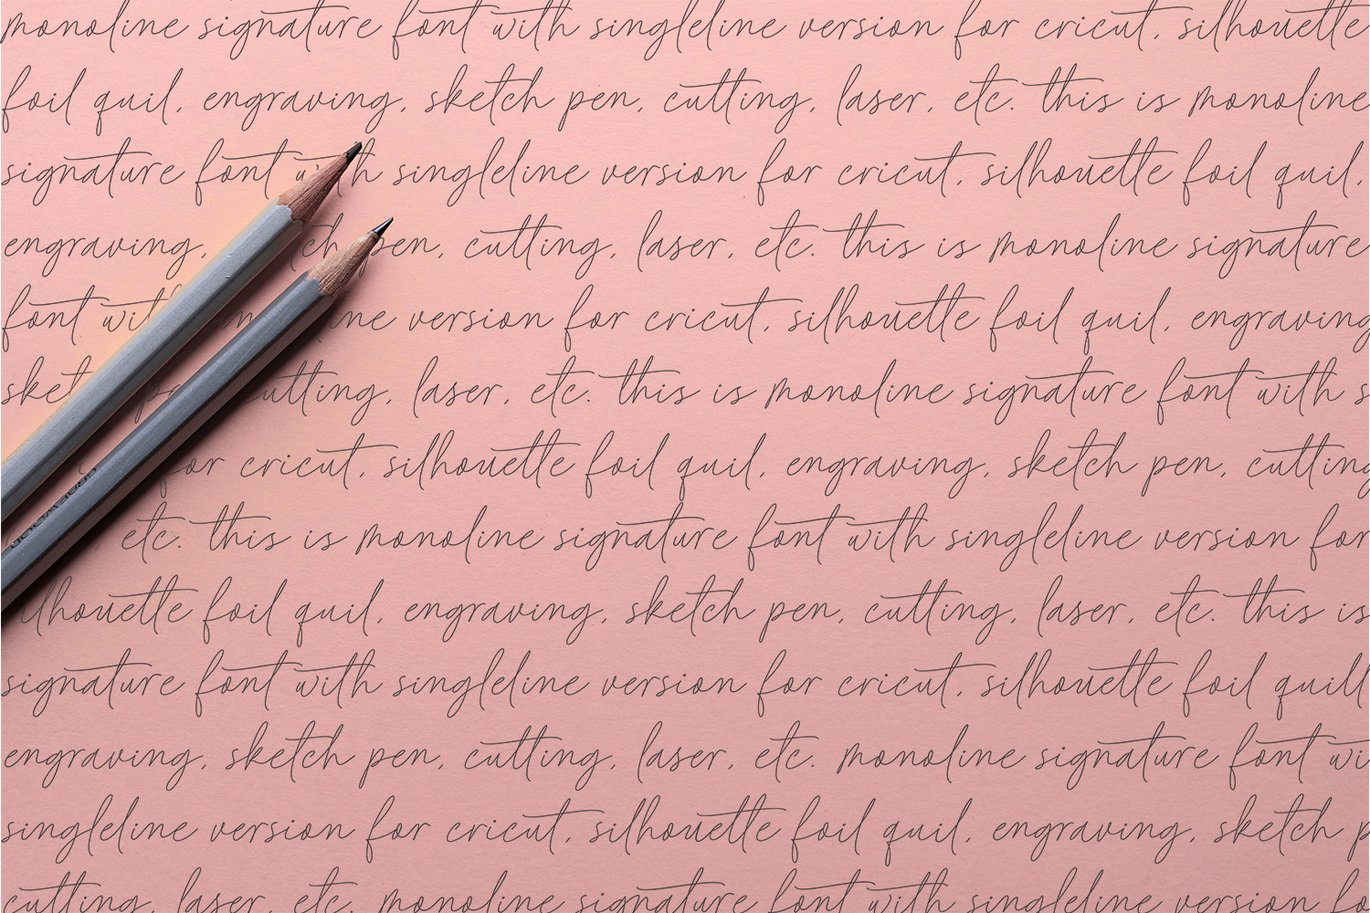 monoline signature font with singleline version for cricut, silhouette
foil quil, engraving, sketch pen, cutting, laser, etc. this is monoline
signature font with singleline version for cricut, silhouette foil quil,
engraving, pen, cutting, laser, etc. this is monoline signature
font version for cricut, silhouette foil quil, engraving
cutting, laser, etc. this is monoline signature font with s
for cricut, silhouette foil quil, engraving, sketch pen, cutting
etc. this is monoline signature font with singleline version for
silhouette foil quil, engraving, sketch pen, cutting, laser, etc. this is
signature font with singleline version for cricut, silhouette foil quill
engraving, sketch pen, cutting, laser, etc. monoline signature font wi
singleline version for cricut, silhouette foil quil, engraving, sketch p
cutting, laser, etc. monoline signature font with singleline version for